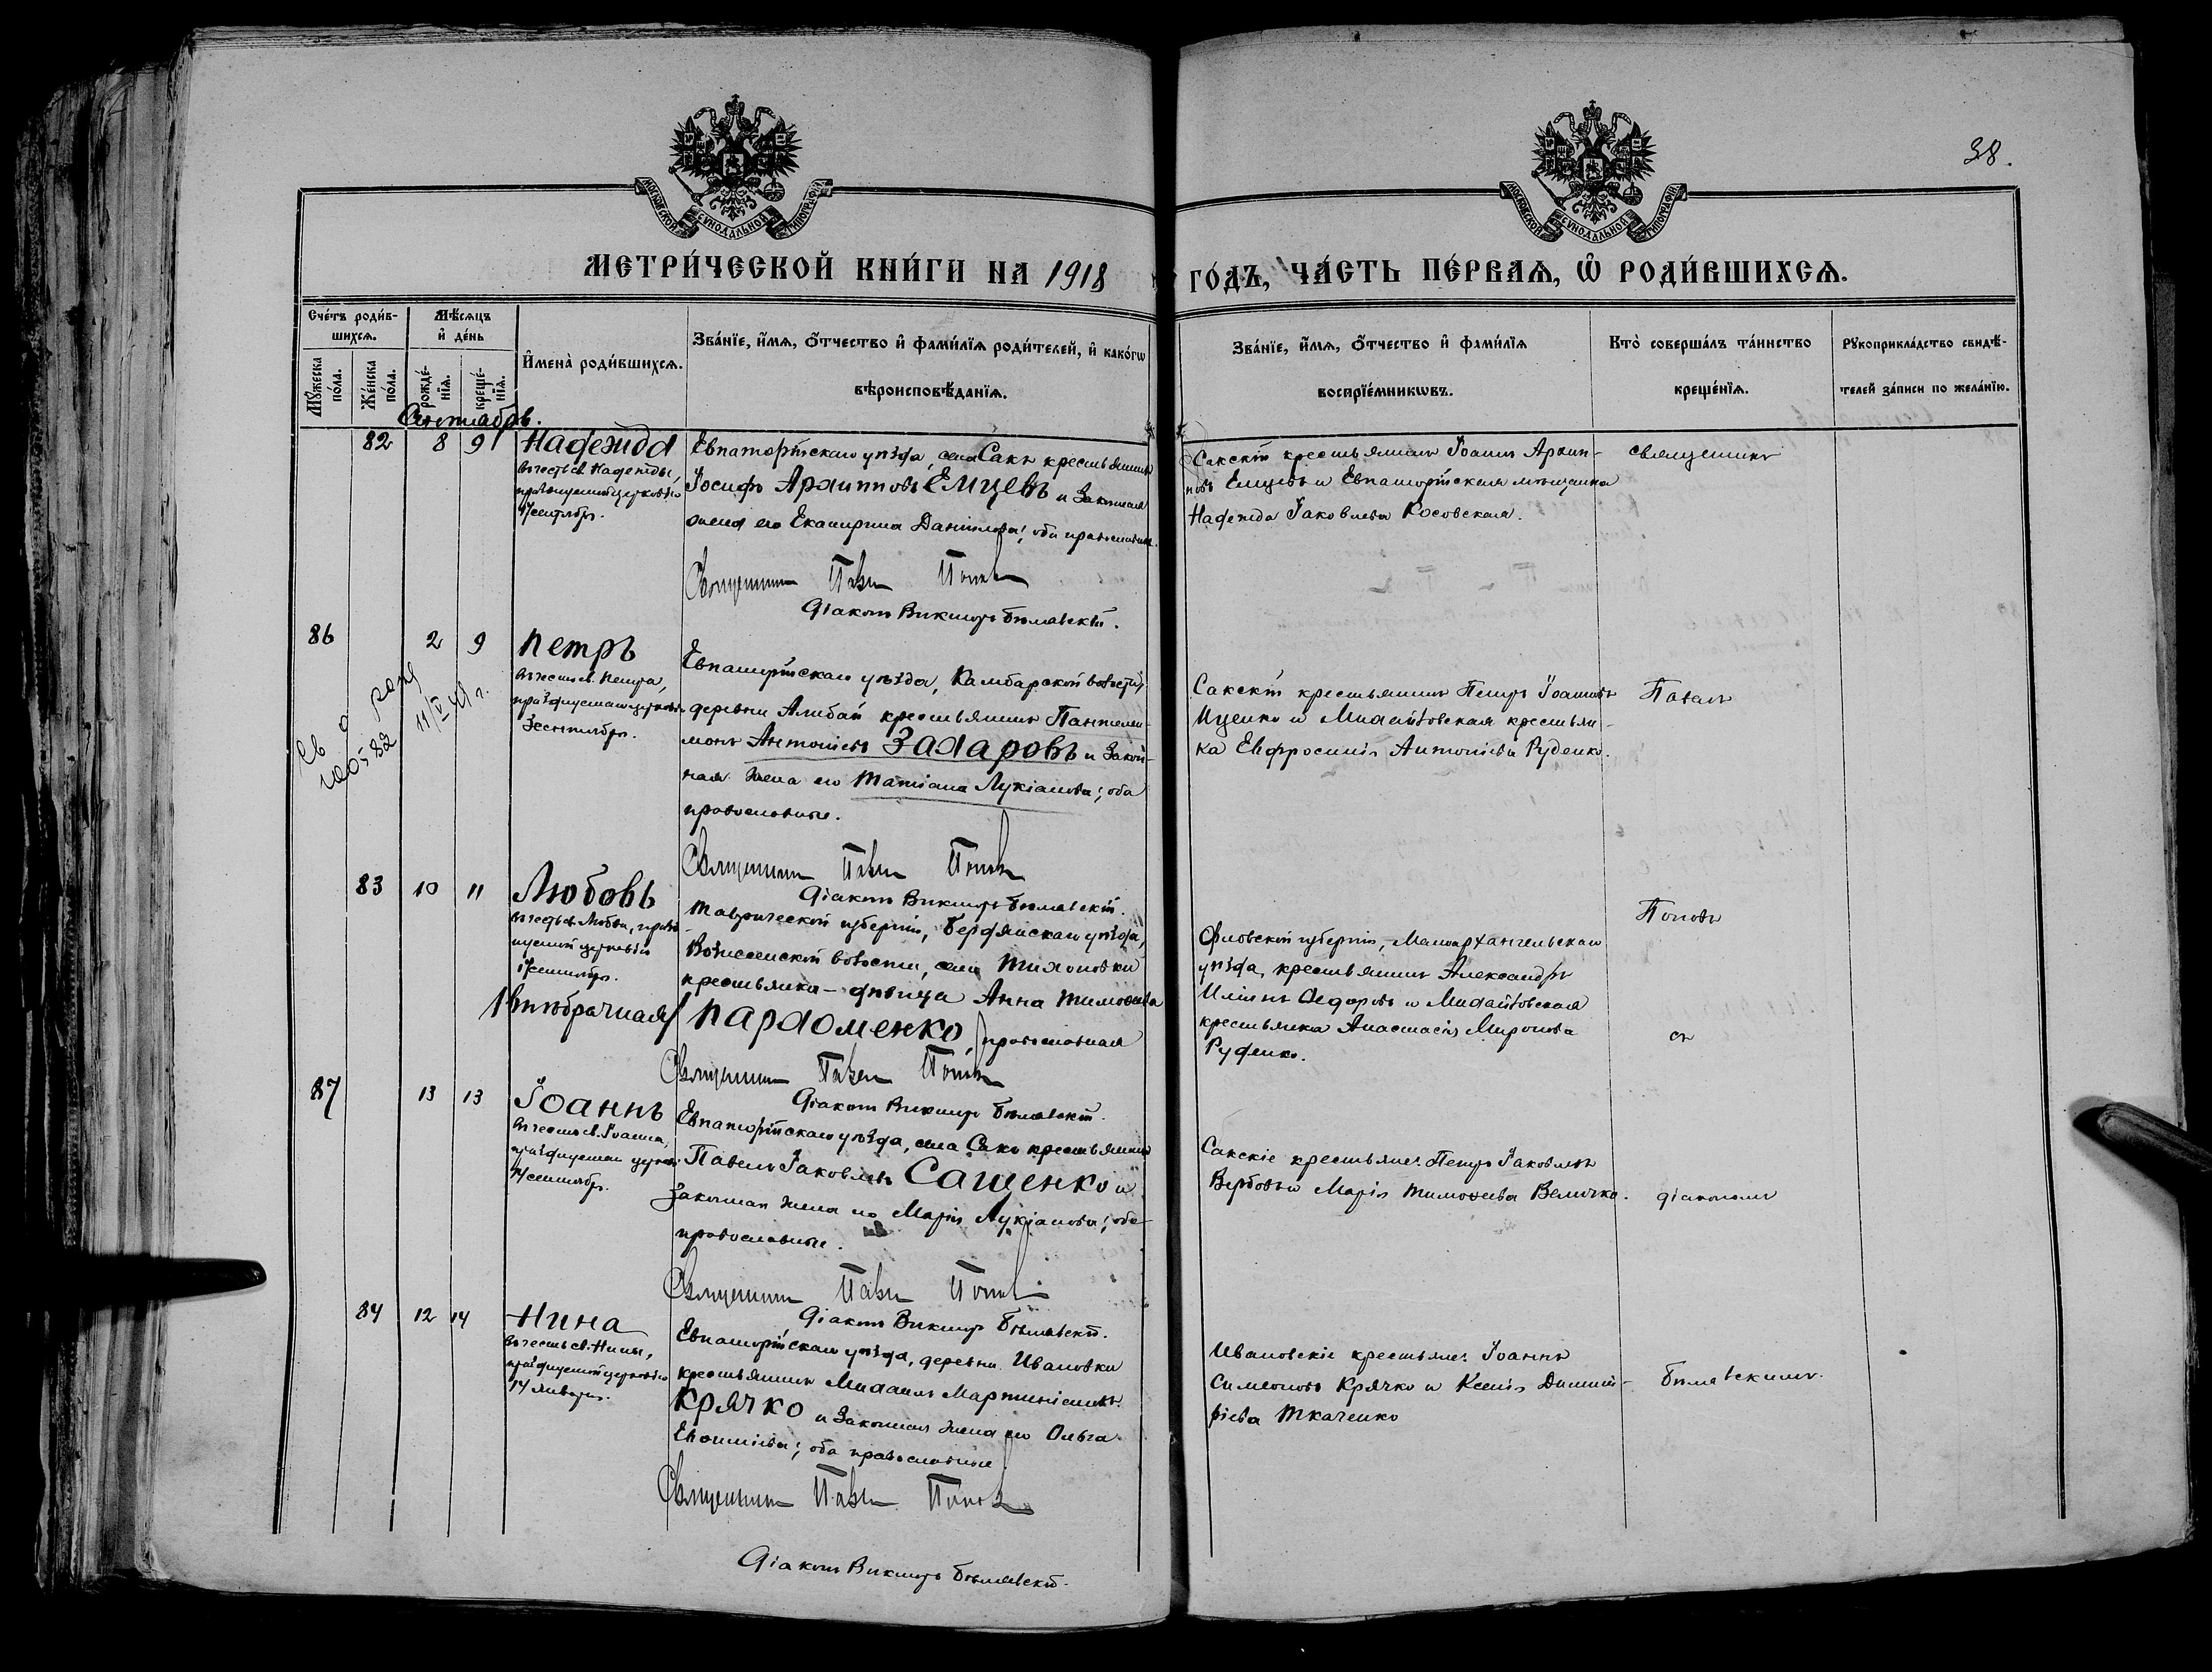 38.
МОСКОВСКОЙ СУНОДАЛЬНОЙ ТИПОГРАФІИ
МОСКОВСКОЙ СУНОДАЛЬНОЙ ТИПОГРАФІИ
МЕТРИ́ЧЕСКОЙ КНИ́ГИ НА 1918 ГО́ДЪ, ЧА́СТЬ ПЕ́РВАѦ, Ѿ РОДИ́ВШИХСѦ.
Сче́тъ роди́в-
шихсѧ.
Мѣ́сѧцъ
и҆ де́нь
Мꙋ́жеска
по́ла.
Же́нска
по́ла.
рожде́-
нїѧ.
креще́-
нїѧ.
И҆мена̀ роди́вшихсѧ.
Зва́нїе, и҆́мѧ, ѻ҆́тчество и҆ фами́лїѧ роди́телей, и҆ како́гѡ
вѣроисповѣ́данїѧ.
Зва́нїе, и҆́мѧ, ѻ҆́тчество и҆ фами́лїѧ
воспрїе́мникѡвъ.
Кто̀ соверша́лъ та́инство
креще́нїѧ.
Рꙋкоприкла́дство свидѣ́-
телей за́писи по жела́нїю.
Сентябрь.
82 8 9 Надежда
въ честь св. Надежды,
празднуемой церковью
17 сентября.
Евпаторійскаго уѣзда, села Сакъ крестьянинъ
Іосифъ Архипповъ Емцевъ и законная
жена его Екатерина Даніилова; оба православные.
Священникъ Павелъ Поповъ
Діаконъ Викторъ Бѣлявскій.
Сакскій крестьянинъ Іоаннъ Архип-
повъ Емцевъ и Евпаторійская мѣщанка
Надежда Іаковлева Косовская.
священникъ
86 2 9 Петръ
въ честь св. Петра,
празднуемаго церковью
3 сентября.
11/V 49 г.
Евпаторійскаго уѣзда, Камбарской волости,
деревни Алибай крестьянинъ Пантелеи-
монъ Антоніевъ Захаровъ и закон-
ная жена его Татіана Лукіанова; оба
православные.
Священникъ Павелъ Поповъ
Діаконъ Викторъ Бѣлявскій.
Сакскій крестьянинъ Петръ Іоанновъ
Ищенко и Михайловская крестьян-
ка Евфросинія Антоніева Руденко.
Павелъ
83 10 11 Любовь
въ честь св. Любви, празд-
нуемой церковью
17 сентября.
/Внѣбрачная/
Таврической губерніи, Бердянскаго уѣзда,
Вознесенской волости, села Тихоновки
крестьянка - дѣвица Анна Тимоѳеева
Пархоменко, православная
Священникъ Павелъ Поповъ
Діаконъ Викторъ Бѣлявскій.
Орловской губерніи, Малоархангельскаго
уѣзда, крестьянинъ Александръ
Иліинъ Ѳедоровъ и Михайловская
крестьянка Анастасія Миронова
Руденко.
Поповъ
съ
87 13 13 Іоаннъ
въ честь св. Іоанна,
празднуемаго церковью
Евпаторійскаго уѣзда, села Сакъ крестьянинъ
Павелъ Іаковлевъ Сашенко и
законная жена его Марія Лукіанова; оба
православные.
Священникъ Павелъ Поповъ
Діаконъ Викторъ Бѣлявскій.
Сакскіе крестьяне: Петръ Іаковлевъ
Вербовъ и Марія Тимоѳеева Величко.
діакономъ
84 12 14 Нина
въ честь св. Нины,
празднуемой церковью
14 января.
Евпаторійскаго уѣзда, деревни Ивановки
крестьянинъ Михаилъ Мартиніановъ
Крячко и законная жена его Ольга
Евѳиміева; оба православные.
Священникъ Павелъ Поповъ
Діаконъ Викторъ Бѣлявскій.
Ивановскіе крестьяне: Іоаннъ
Симеоновъ Крячко и Ксенія Димит-
ріева Ткаченко
Бѣлявскимъ.